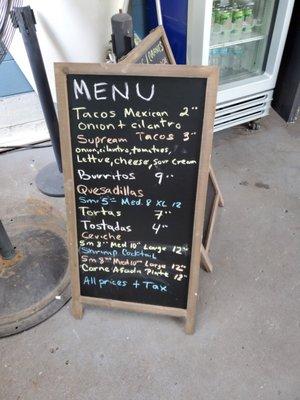 MENU
Tacos Mexican 2"
onion + cilantro
Supream Tacos 3"
onion, cilantro, tomatoes,
Lettuce, cheese, Sour cream
Burritos 9"
Quesadillas
Sm 5" Med. 8 XL 12
Tortas 7"
Tostadas 4"
Ceviche
Sm 8" Med 10" Large 12"
Shrimp Cocktail
Sm 8" Med 10" Large 12"
Carne Asada Plate 12"
All prices + Tax